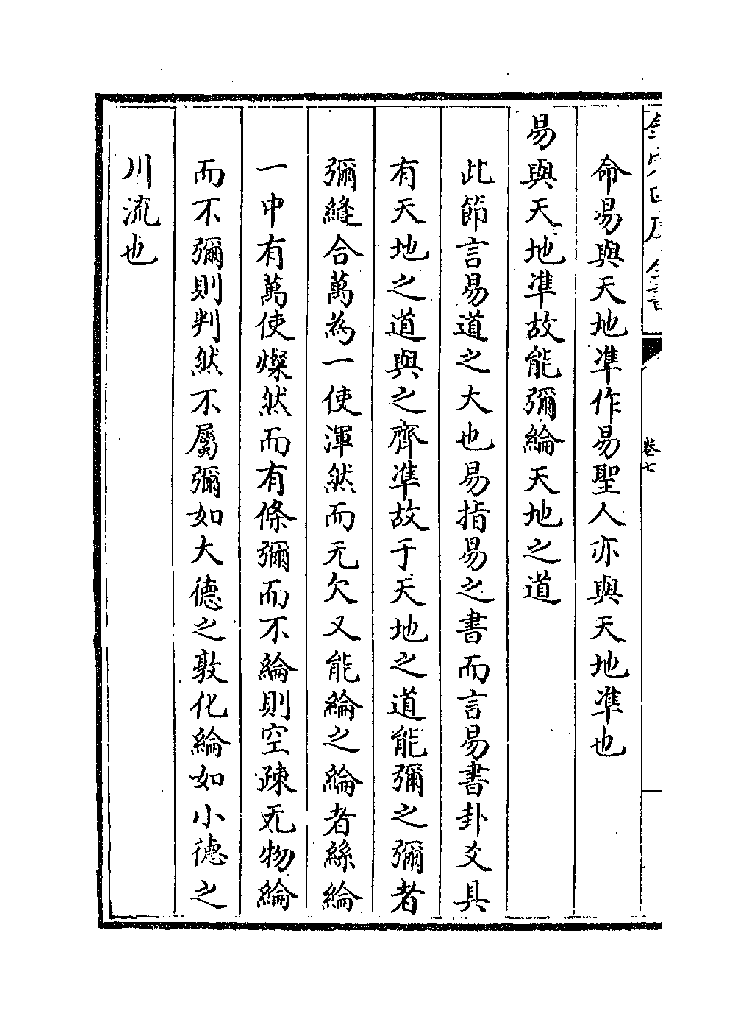 命易與天地準作易聖人亦與天地準也
易與天地準故能彌綸天地之道
此節言易道之大也易指易之書而言易書卦爻具
有天地之道與之齊準故于天地之道能彌之彌者
彌縫合萬為一使渾然而无欠又能綸之綸者絲綸
一中有萬使燦然而有條彌而不綸則空疎无物綸
而不彌則判然不屬彌如大德之敦化綸如小德之
川流也
卷七